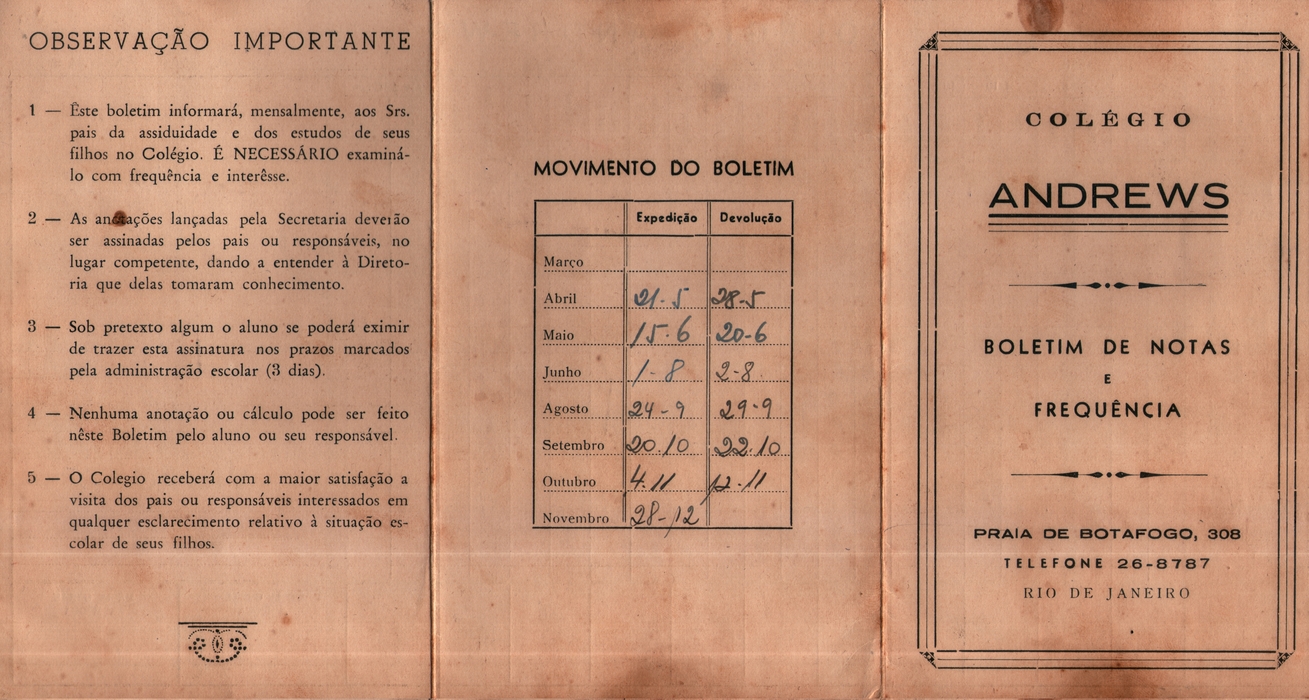 OBSERVAÇÃO IMPORTANTE
1 — Êste boletim informará, mensalmente, aos Srs.
pais da assiduidade e dos estudos de seus
filhos no Colégio. É NECESSÁRIO examiná-
lo com frequência e interêsse.
2 — As anotações lançadas pela Secretaria deverão
ser assinadas pelos pais ou responsáveis, no
lugar competente, dando a entender à Direto-
ria que delas tomaram conhecimento.
3 — Sob pretexto algum o aluno se poderá eximir
de trazer esta assinatura nos prazos marcados
pela administração escolar (3 dias).
4 — Nenhuma anotação ou cálculo pode ser feito
nêste Boletim pelo aluno ou seu responsável.
5 — O Colegio receberá com a maior satisfação a
visita dos pais ou responsáveis interessados em
qualquer esclarecimento relativo à situação es-
colar de seus filhos.
MOVIMENTO DO BOLETIM
Expedição Devolução
Março
Abril 21-5 28-5
Maio 15-6 20-6
Junho 1-8 2-8
Agosto 24-9 29-9
Setembro 20.10 22.10
Outubro 4.11 12-11
Novembro 28-12
COLÉGIO
ANDREWS
BOLETIM DE NOTAS
E
FREQUÊNCIA
PRAIA DE BOTAFOGO, 308
TELEFONE 26-8787
RIO DE JANEIRO